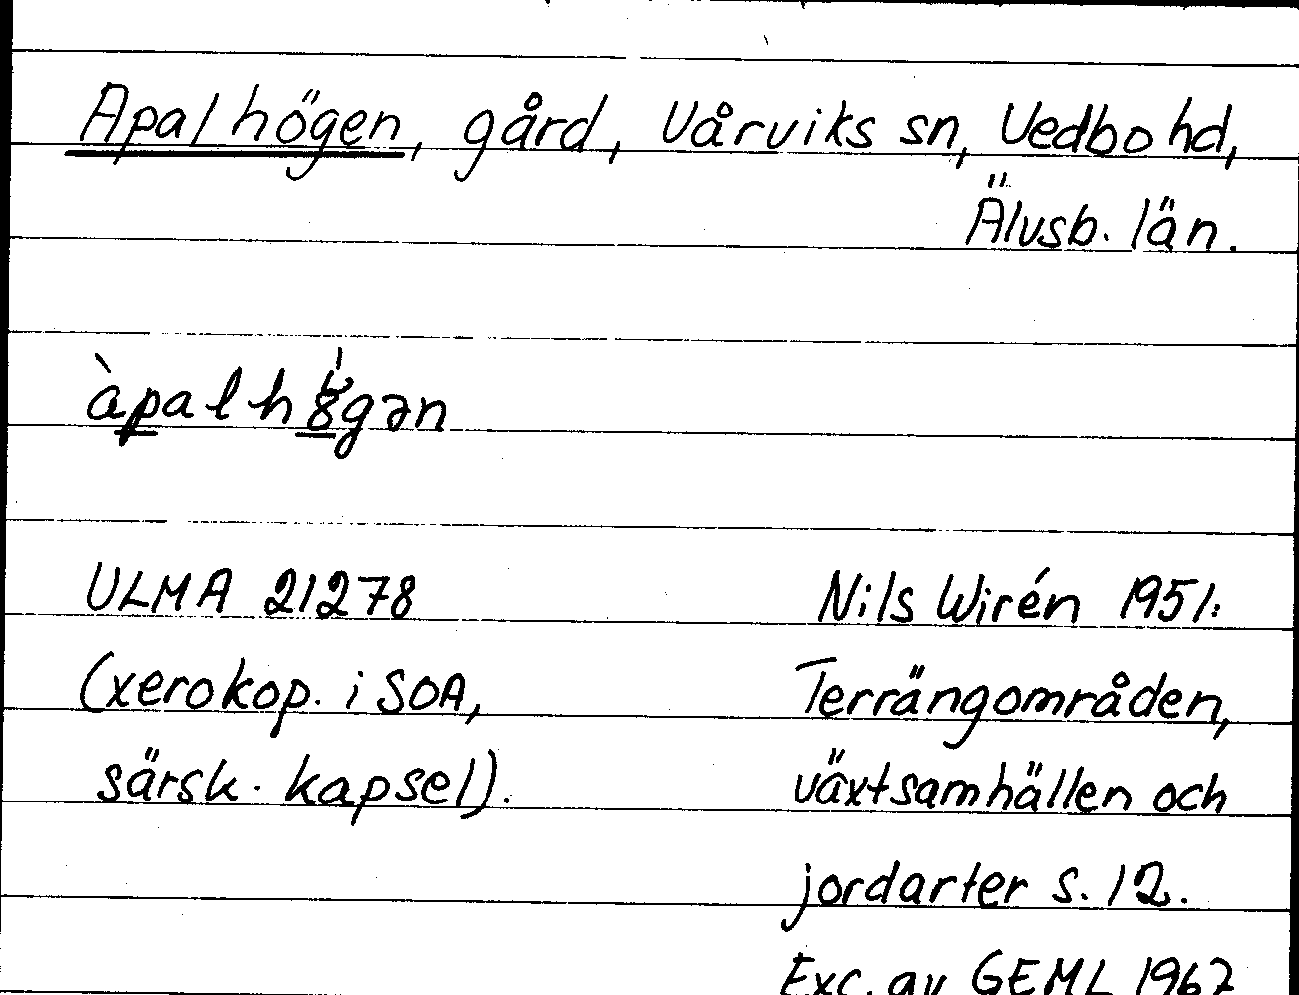 Apalhögen, gård, Vårviks sn, Vedbo hd,
Älvsb. län.
àpalhögən
ULMA 21278
(xerokop. i SOA,
särsk. kapsel).
Nils Wirén 1951:
Terrängområden,
växtsamhällen och
jordarter s. 12.
Exc. av GEML 1967